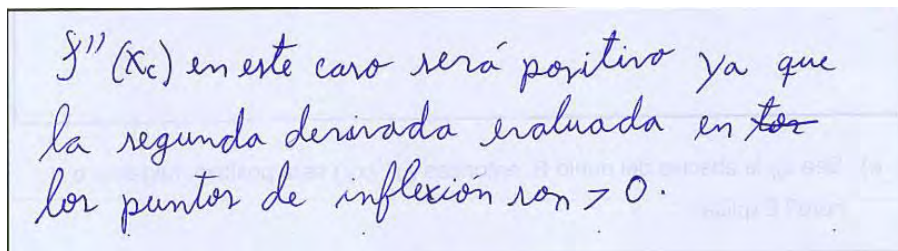 f''(xc) en este caso será positivo ya que
la segunda derivada evaluada en los
los puntos de inflexion son > 0.